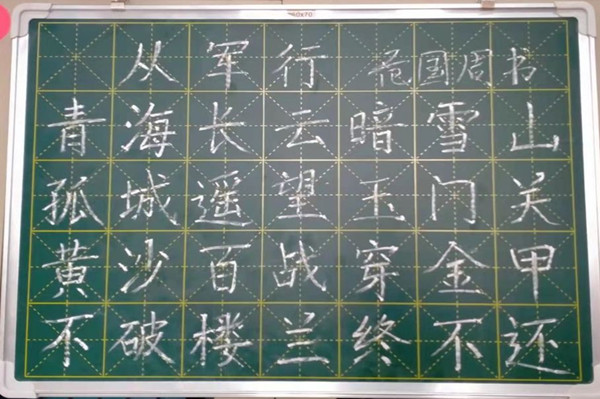 从军行 危国周书
青海长云暗雪山
孤城遥望玉门关
黄沙百战穿金甲
不破楼兰终不还